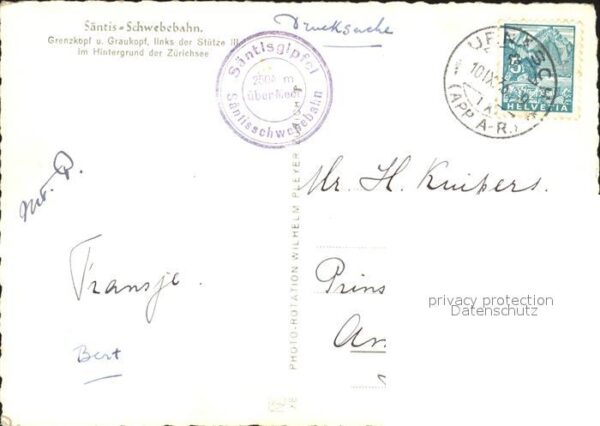 Säntis-Schwebebahn.
Grenzkopf u. Graukopf, links der Stütze III
Im Hintergrund der Zürichsee
Drucksache
Säntisgipfel
2504 m
über Meer
Säntisschwebebahn
URNÄSCH
10.IX.
(APP. A-R.)
HELVETIA
Mr. H. Kuipers.
Prins
Am
Fransje.
Bert
PHOTO-ROTATION WILHELM PLEYER
privacy protection
Datenschutz